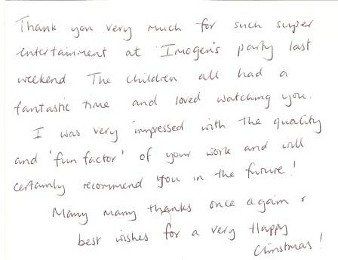 Thank you very much for such super
entertainment at Imogen's party last
weekend The children all had a
fantastic time and loved watching you.
I was very impressed with the quality
and 'fun factor' of your work and will
certainly recommend you in the future!
Many many thanks once again &
best wishes for a very Happy
Christmas!